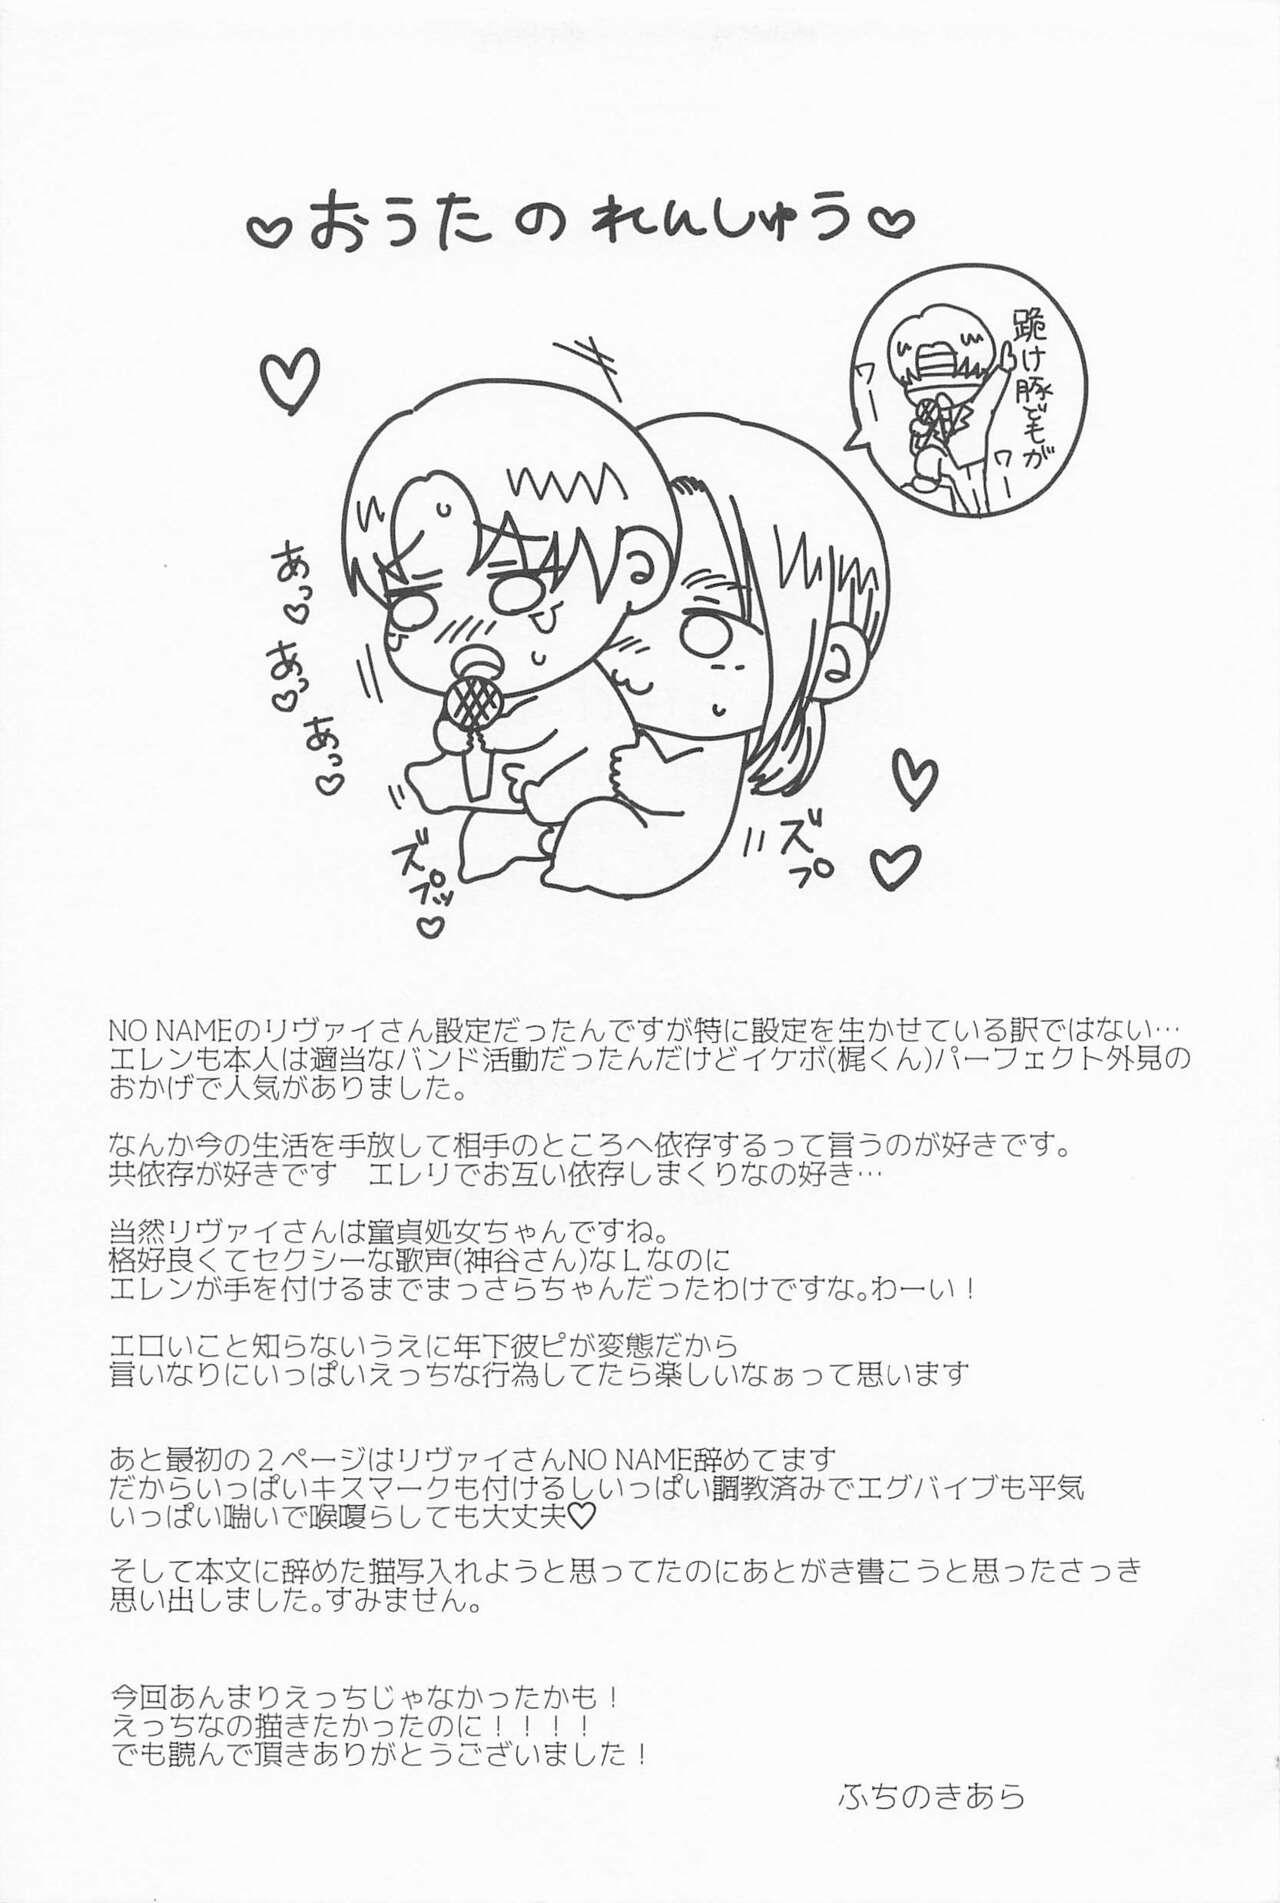 ♡おうたのれんしゅう♡
跪け豚どもが
ワー
ワー
あっ♡
あっ♡
あっ♡
ズプッ♡
ズプ
NO NAMEのリヴァイさん設定だったんですが特に設定を生かせている訳ではない…
エレンも本人は適当なバンド活動だったんだけどイケボ(梶くん)パーフェクト外見の
おかげで人気がありました。
なんか今の生活を手放して相手のところへ依存するって言うのが好きです。
共依存が好きです　エレリでお互い依存しまくりなの好き…
当然リヴァイさんは童貞処女ちゃんですね。
格好良くてセクシーな歌声(神谷さん)なLなのに
エレンが手を付けるまでまっさらちゃんだったわけですな。わーい！
エロいこと知らないうえに年下彼ピが変態だから
言いなりにいっぱいえっちな行為してたら楽しいなぁって思います
あと最初の２ページはリヴァイさんNO NAME辞めてます
だからいっぱいキスマークも付けるしいっぱい調教済みでエグバイブも平気
いっぱい喘いで喉嗄らしても大丈夫♡
そして本文に辞めた描写入れようと思ってたのにあとがき書こうと思ったさっき
思い出しました。すみません。
今回あんまりえっちじゃなかったかも！
えっちなの描きたかったのに！！！！
でも読んで頂きありがとうございました！
ふちのきあら